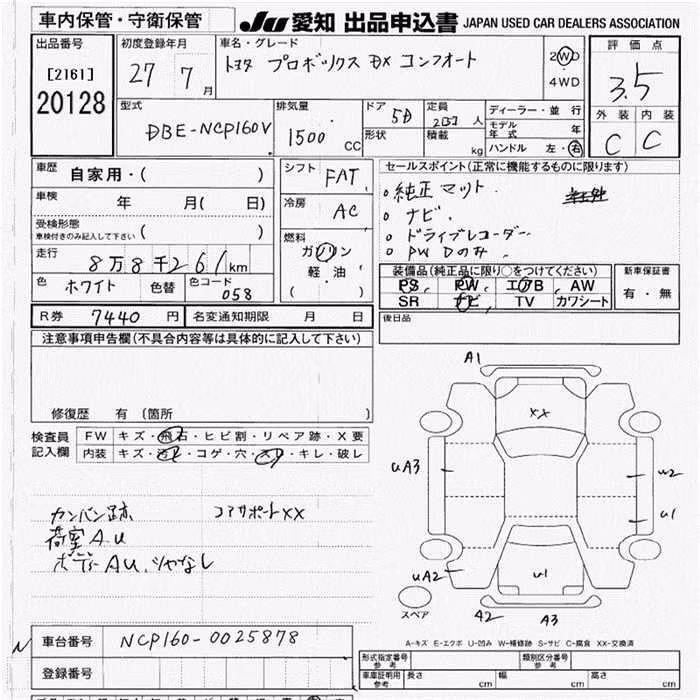 車内保管・守衛保管 JU愛知 出品申込書 JAPAN USED CAR DEALERS ASSOCIATION
出品番号 初度登録年月 車名・グレード 評価点
[2161] 27 7 月 トヨタ プロボックス DX コンフォート 2WD 3.5
20128 4WD
型式 排気量 ドア 定員 ディーラー・並行 外装 内装
DBE-NCP160V 1500 CC 5D 人 モデル年式 年 C C
形状 積載 kg ハンドル 左・右
車歴 自家用・( ) シフト FAT セールスポイント(正常に機能するものに限ります)
車検 年 月( 日) 冷房 AC 。純正マット
受検形態 。ナビ
車検付きのみ記入して下さい ( ) 燃料 。ドライブレコーダー
走行 8万8千261km ガソリン 。PW Dのみ
軽油
( )
色 ホワイト 色替 色コード 058 装備品(純正品に限り○をつけてください) 新車保証書
PS PW エアB AW 有・無
SR ナビ TV カワシート
R券 7440 円 名変通知期限 月 日 後日品
注意事項申告欄(不具合内容等は具体的に記入して下さい)
修復歴 有(箇所 )
検査員記入欄 FW キズ・飛石・ヒビ割・リペア跡・X要
内装 キズ・汚レ・コゲ・穴・スレ・キレ・破レ
カンバン跡 コアサポートXX
荷室AU
ボディAU、ツヤなし
A1
XX
UA3 U2
U1
UA2 U1
スペア A2 A3
A-キズ E-エクボ U-凹み W-補修跡 S-サビ C-腐食 XX-交換済
車台番号 NCP160-0025878 形式指定番号 参考 類別区分番号 参考
登録番号 車庫証明用 参考 長さ cm 幅 cm 高さ cm